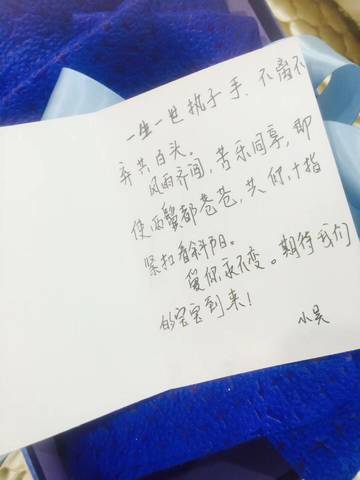 一生一世执子手、不离不
弃共白头。
风雨齐闯，苦乐同享，即
使两鬓都苍苍，共你十指
紧扣看斜阳。
爱你永不变。期待我们
的宝宝到来！
小昊